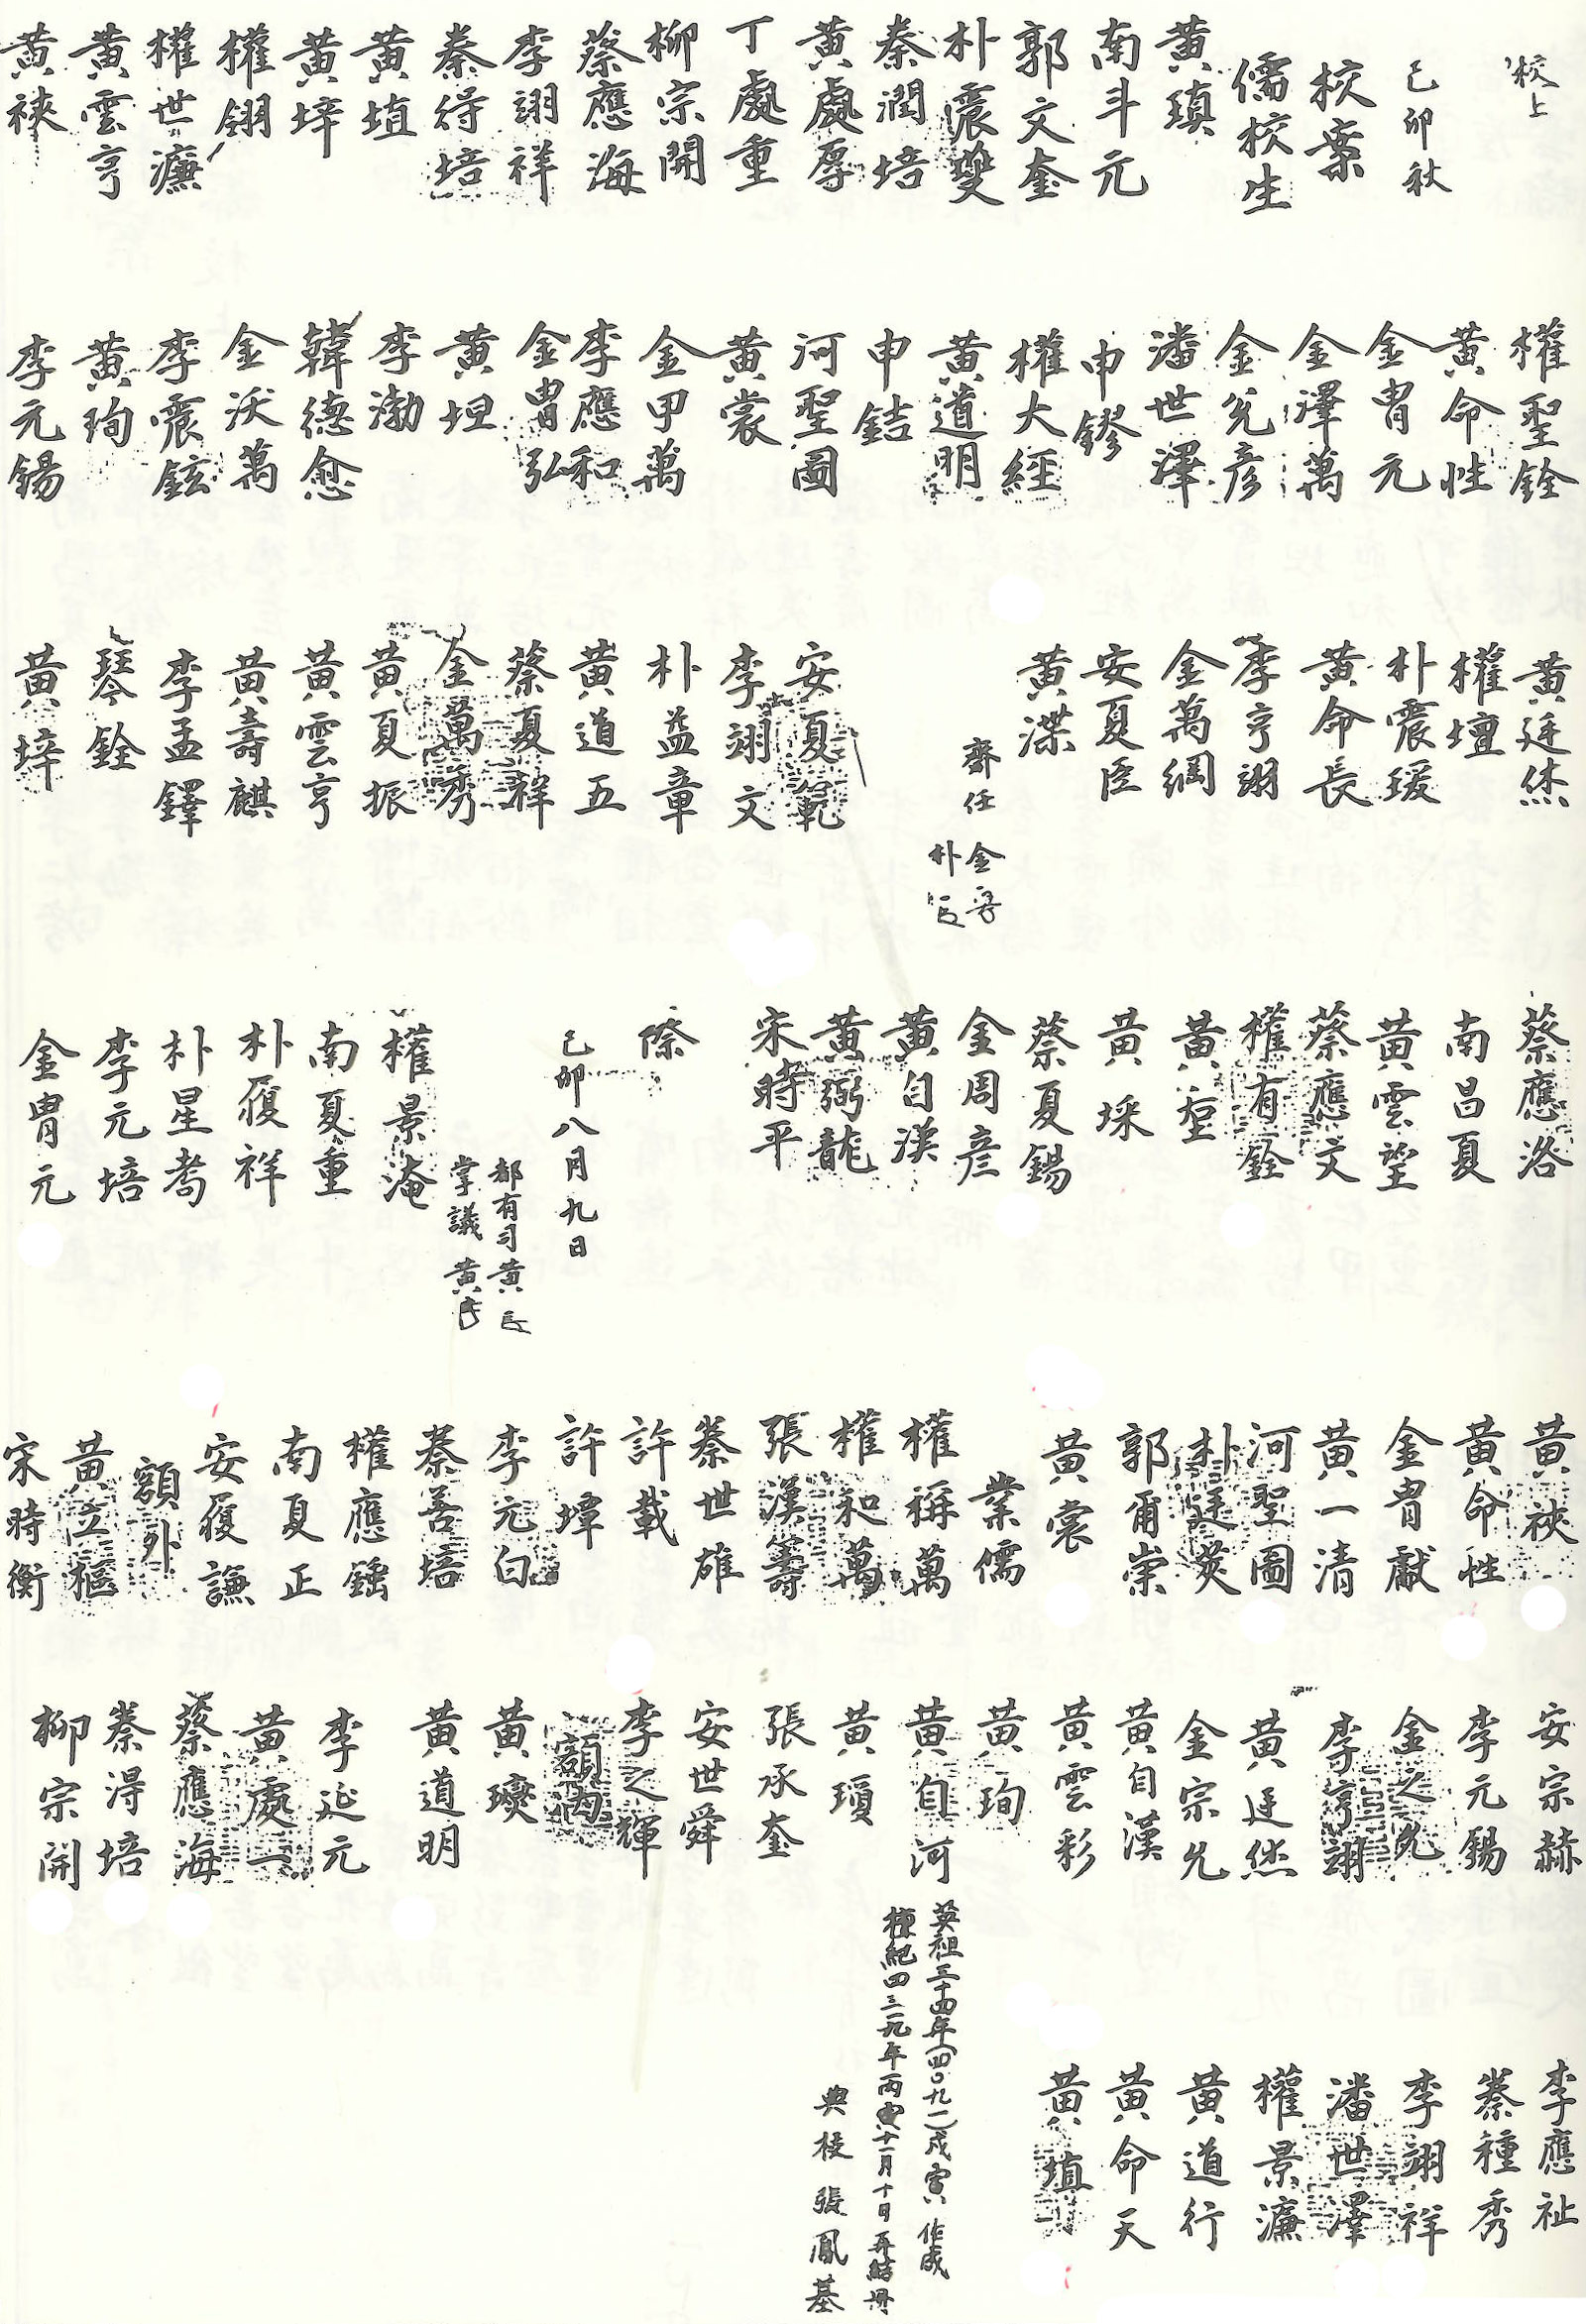 校上
己卯秋
校案
儒校生
黄瑱
南斗元
郭文奎
朴震雙
秦潤培
黄處厚
丁處重
柳宗開
蔡應海
李翊祥
秦得培
黄埴
黄垶
權翎
權世濂
黄雲亨
黄裌
權聖銓
黄命性
金胄元
金澤萬
金允彦
潘世澤
申鏐
權大經
黄道明
申銡
河聖圖
黄裳
金甲萬
李應和
金胄弘
黄坦
李渤
韓德愈
金沃萬
李震鉉
黄珣
李元錫
黄廷烋
權壇
朴震瑗
黄命長
李亨翊
金萬綱
安夏臣
黄渫
齋任 金
朴
安夏範
李翊文
朴益章
黄道五
蔡夏祥
金萬秀
黄夏振
黄雲亨
黄壽麒
李孟鐸
琴銓
黄垶
蔡應洛
南昌夏
黄雲望
蔡應文
權有銓
黄垕
黄埰
蔡夏錫
金周彦
黄自漢
黄弼龍
宋時平
際
己卯八月九日
都有司黄
掌議 黄
權景淹
南夏重
朴履祥
朴星耈
李元培
金胄元
黄裌
黄命性
金胄獻
黄一清
河聖圖
朴廷爽
郭爾崇
黄裳
業儒
權稱萬
權和萬
張漢籌
蔡世雄
許載
許墇
李元白
蔡善培
權應鍩
南夏正
安履謙
額外
黄立樞
宋時衡
安宗赫
李元錫
金之允
李亨翊
黄廷烋
金宗允
黄自漢
黄雲彩
黄珣
黄自河
黄瓊
張承奎
安世舜
李之輝
額內
黄瓊
黄道明
李延元
黄處一
蔡應海
秦得培
柳宗開
李應祉
蔡種秀
李翊祥
潘世澤
權景濂
黄道行
黄命天
黄埴
英祖三十四年(四〇九一)戊寅 作成
檀紀四三一九年丙寅十一月十日再結冊
典校 張鳳基